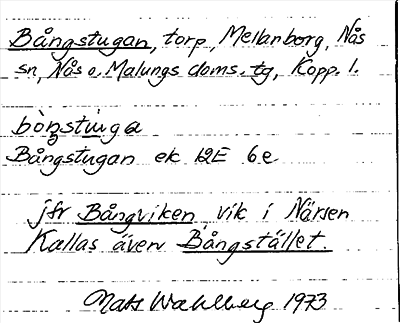 Bångstugan, torp, Mellanborg, Nås
sn, Nås o. Malungs doms. tg, Kopp. l.
bòŋstùga
Bångstugan ek 12E 6e
jfr Bångviken vik i Närsen
Kallas även Bångstället.
Mats Wahlberg 1973